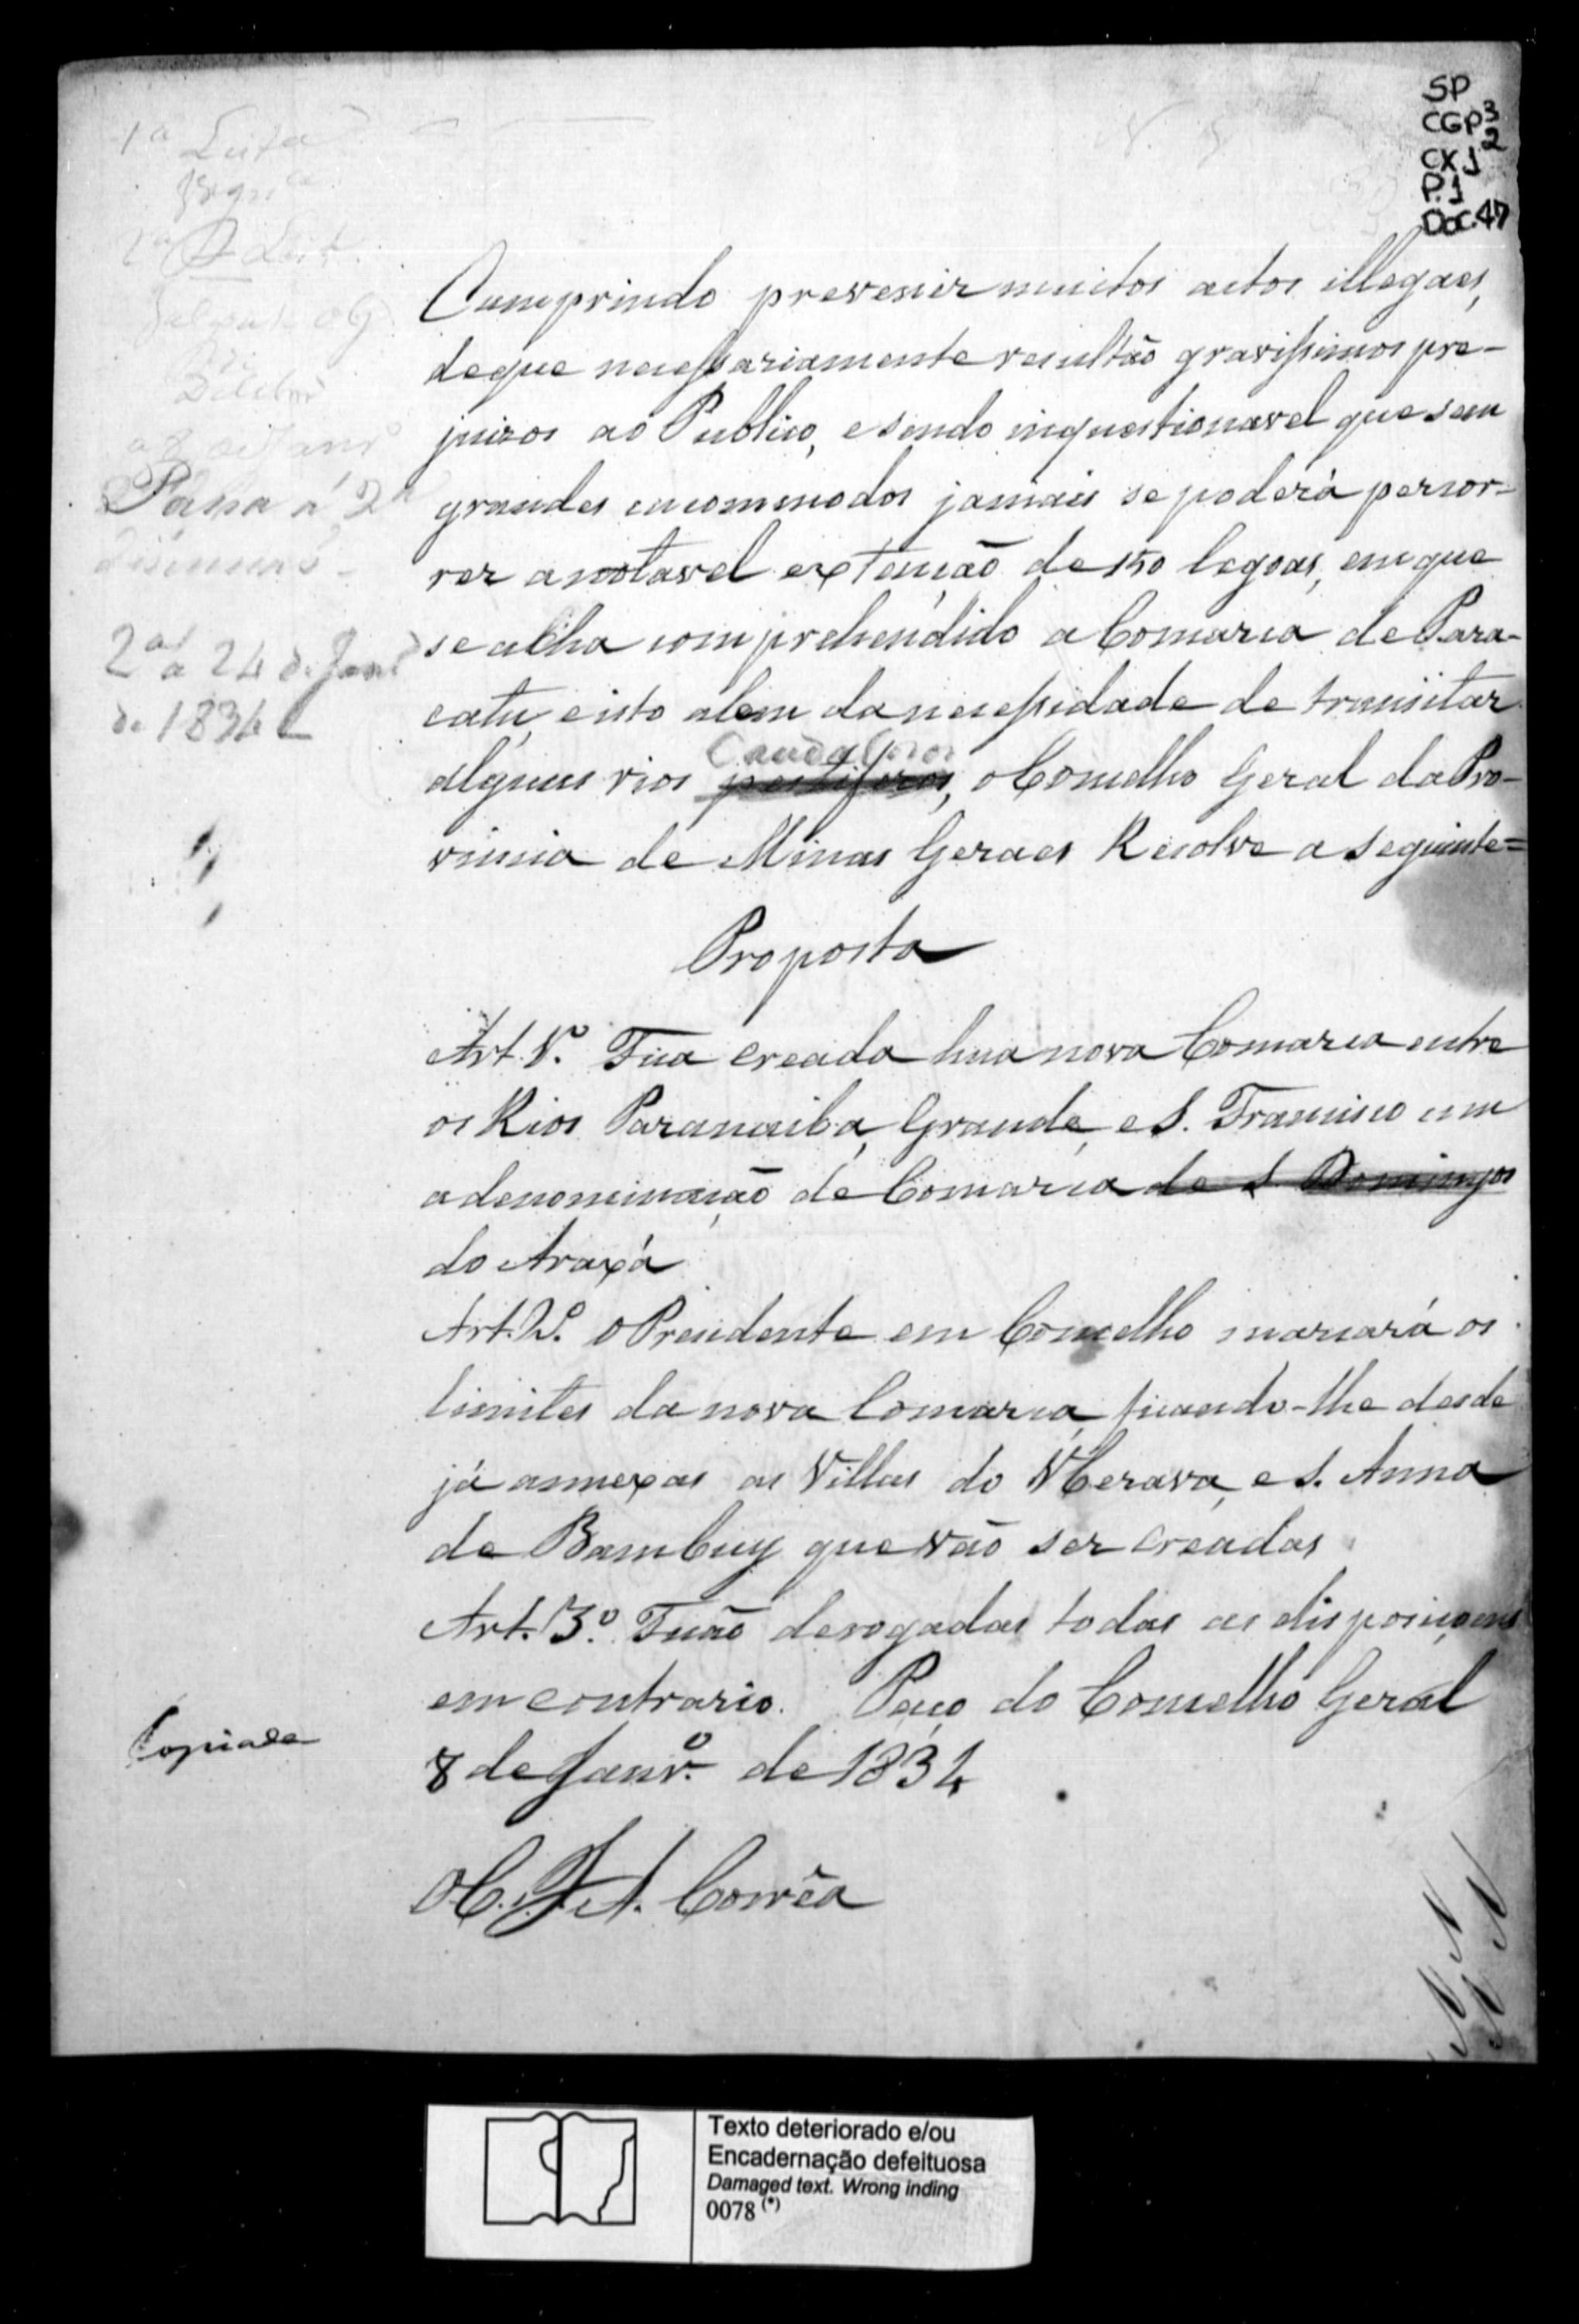 SP
CGP3
CX12
P.1
Doc.47
1ª Leit.ª
2ª Leit.
Passa á 2ª
discussaõ
2ª a 24 d. Janº
de 1834
Cumprindo prevenir muitos actos illegaes,
deque necessariamente resultão gravissimos pre-
juizos ao Publico, esendo inquestionavel que sem
grandes encommodos jamais se poderá percor-
rer a notavel extenção de 150 legoas, em que
se acha comprehendido a Comarca de Para-
catu, e isto alem da necessidade de transitar
alguns rios pestiferos, o Conselho Geral da Pro-
Caudalosos
vincia de Minas Geraes Resolve a seguinte=
Proposta
Art. 1º. Fica creada hua nova Comarca entre
os Rios Paranaiba, Grande, e S. Francisco com
a denominação de Comarca de S. Domingos
do Araxá
Art. 2º. O Presidente em Conselho marcará os
limites da nova Comarca, ficando-lhe desde
já annexas as Villas do Uberava, e S. Anna
de Bambuy que vão ser creadas
Art. 3º. Ficão derogadas todas as disposiçoens
em contrario. Paço do Conselho Geral
8 de Janrº. de 1834
Corrêa
Copiada
Texto deteriorado e/ou
Encadernação defeituosa
Damaged text. Wrong inding
0078 (*)